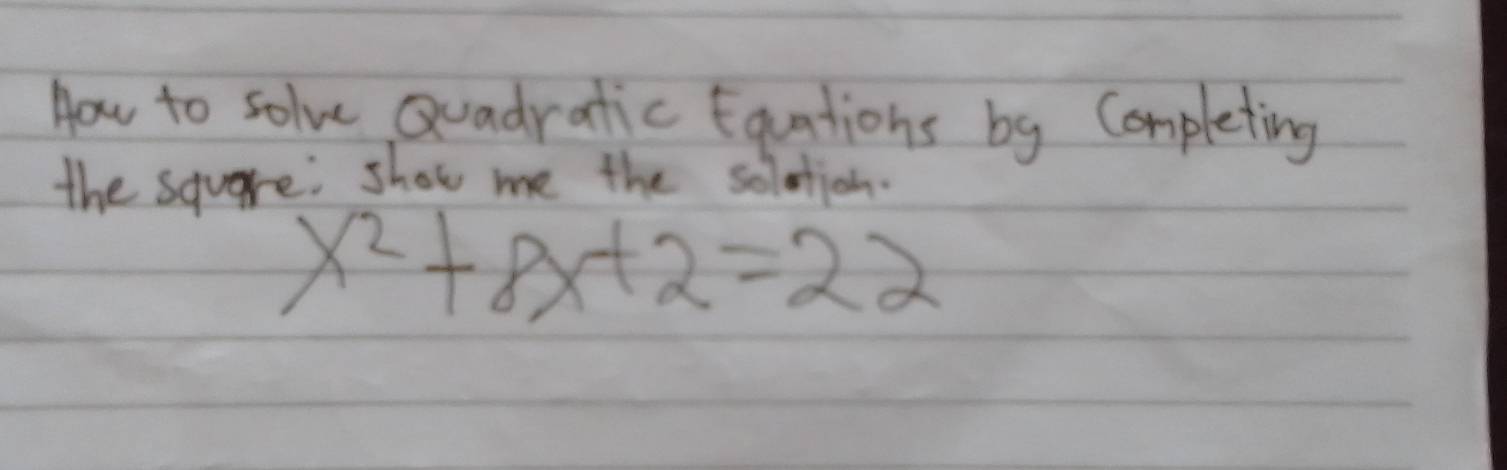 How to solve Quadratic Equations by Completing
the square: show me the solotion.
x² + 8x + 2 = 22